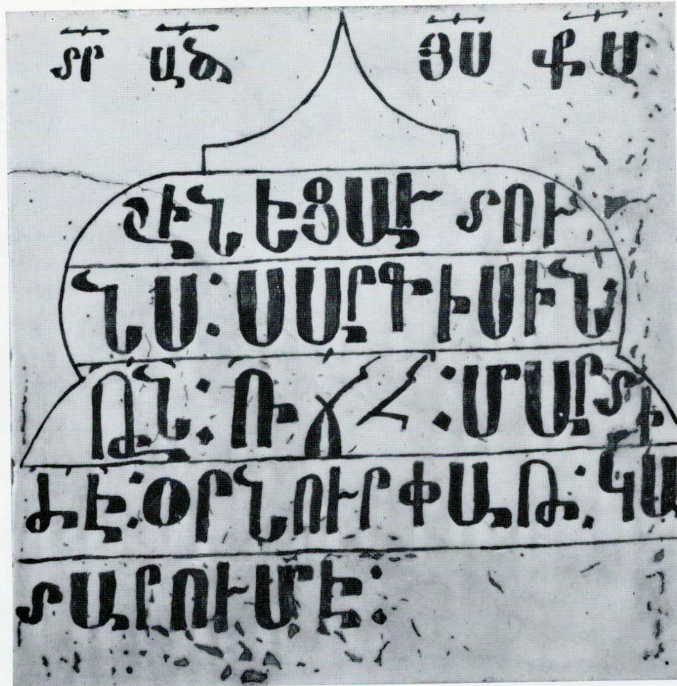 ՏՐ ԱԾ ՅՍ ՔՍ
ՇԻՆԵՑԱՒ ՏՈՒ
ՆՍ։ ՍԱՐԳԻՍԻՆ
ԹՆ։ ՌՃՀ։ ՄԱՐՏԻ
ԺԷ։ ՕՐՆ ՈՒՐՓԱԹ։ ԿԱ
ՏԱՐՈՒՄԷ։